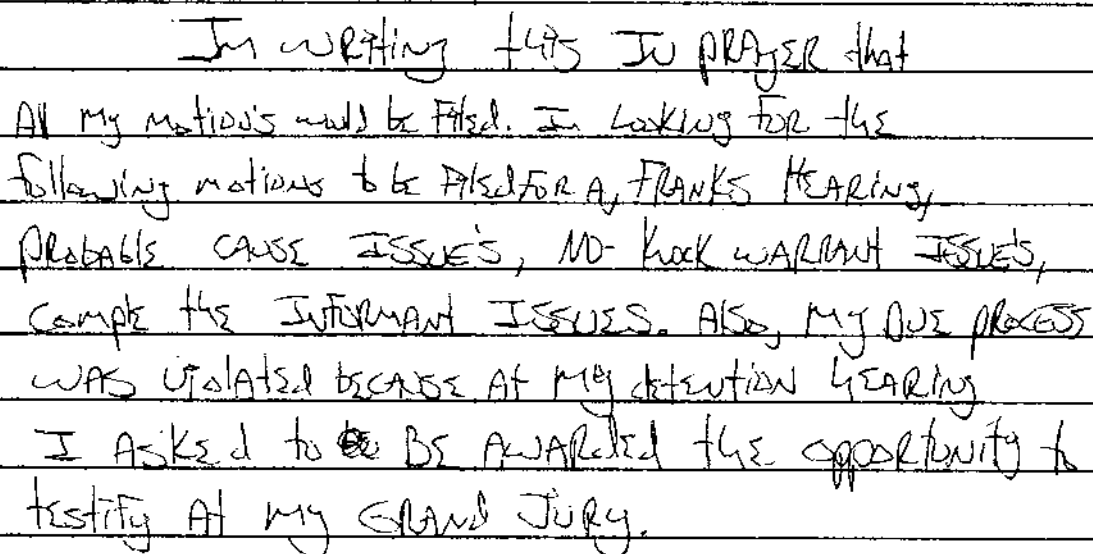 Im writing this In prayer that
All my motion's would be Filed. Im Looking for the
following motions to be Filed For A, FRANKS HEARING,
probable cause ISSUE'S, NO-knock warrant ISSUE'S,
comple the INFORMANT ISSUES. Also, my Due process
was violated because At my detention hearing
I Asked to BE Awarded the opportunity to
testify At my GRAND JURY.